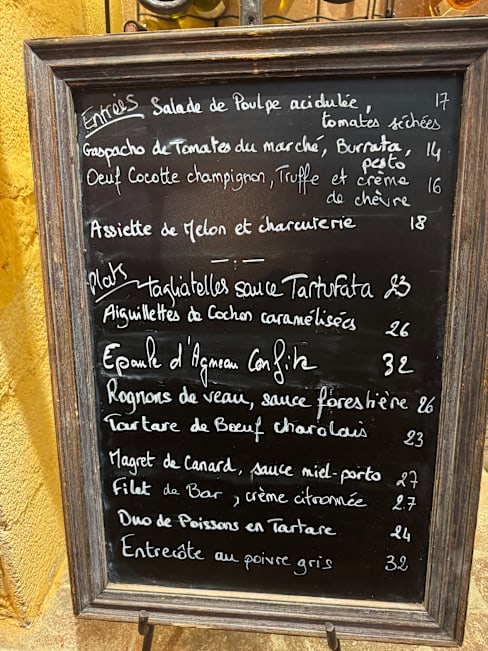 Entrées Salade de Poulpe acidulée, 17
tomates séchées
Gaspacho de Tomates du marché, Burrata, 14
pesto
Oeuf Cocotte champignon, Truffe et crème 16
de chèvre
Assiette de Melon et charcuterie 18
Plats tagliatelles sauce Tartufata 23
Aiguillettes de Cochon caramélisées 26
Epaule d'Agneau Confite 32
Rognons de veau, sauce forestière 26
Tartare de Bœuf charolais 23
Magret de Canard, sauce miel-porto 27
Filet de Bar, crème citronnée 27
Duo de Poissons en Tartare 24
Entrecôte au poivre gris 32